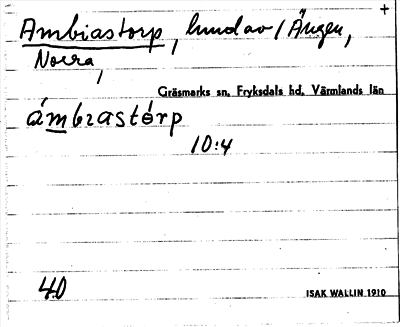 +
Ambiastorp, hmd av / Ängen,
Norra,
Gräsmarks sn. Fryksdals hd. Värmlands län
ámbɪastórp
10:4
40
ISAK WALLIN 1910